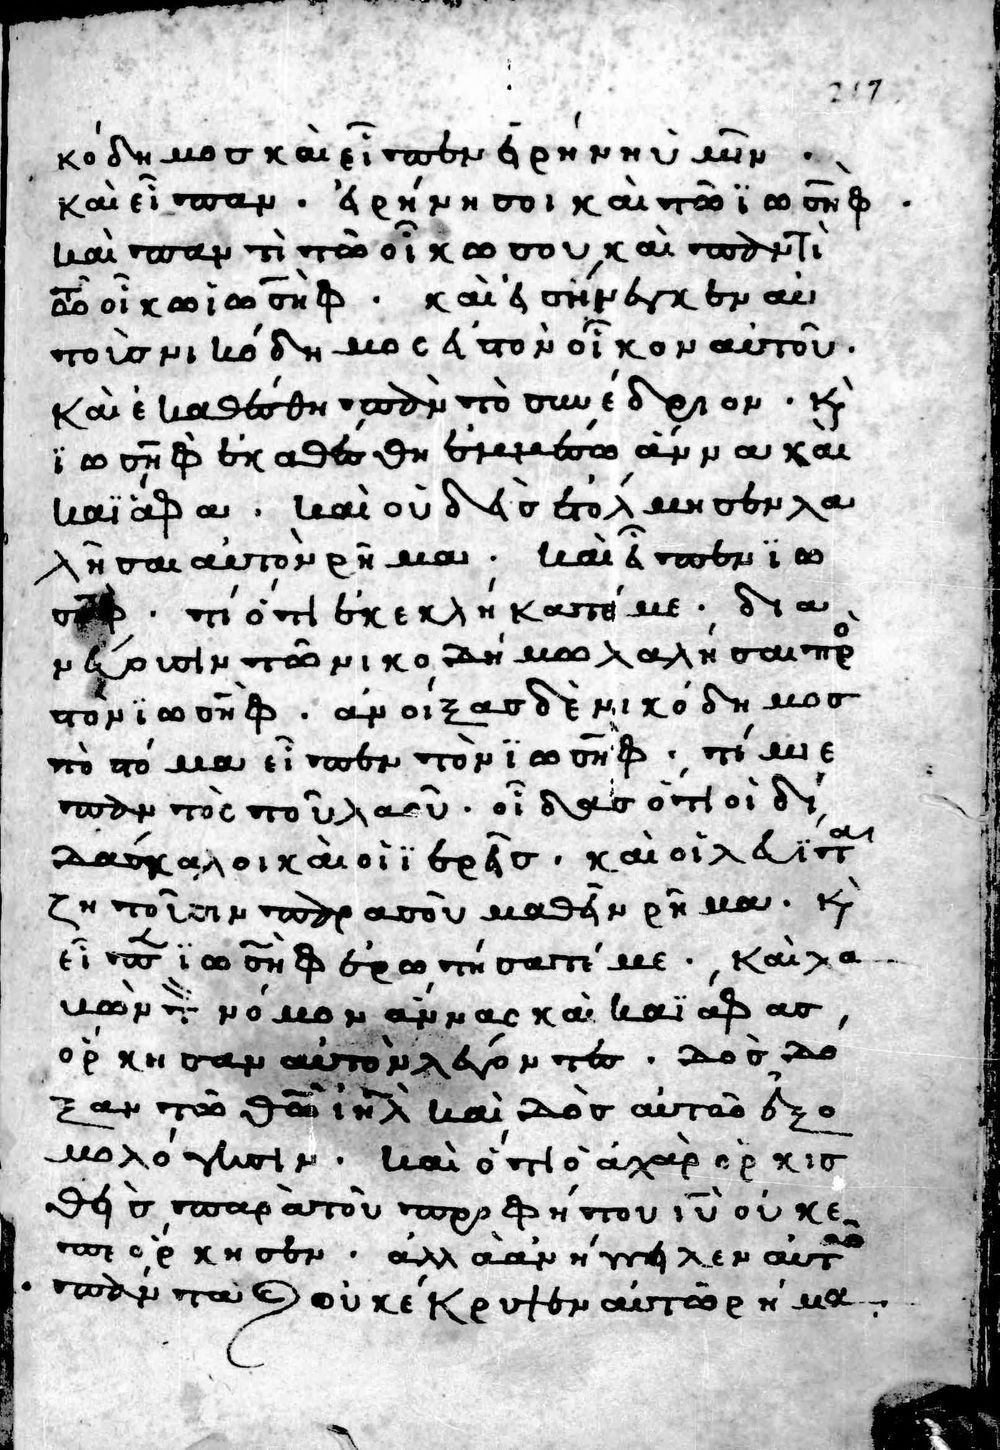 217
κόδημος καὶ εἶπεν εἰρήνη ὑμῖν .
καὶ εἶπαν . εἰρήνη σοι καὶ τῶ ϊωσὴφ .
καὶ παντὶ τῶ οἴκω σου, καὶ παντὶ
τῶ οἴκω ἰωσὴφ . καὶ εἰσήνεγκεν αὐ
τοὺσ νικόδημος εἰς τὸν οἶκον αὐτοῦ .
καὶ ἐκαθέσθη πᾶν τὸ συνέδριον . κὶ
ϊωσὴφ ἐκαθέσθη ἐμμέσω ἄννα καὶ
καϊάφα . καὶ οὐδεὶσ ἐτόλμησεν λα
λῆσαι αὐτὸν ρῆμα . καὶ εἶπεν ϊω
σὴφ . τί ὅτι ἐκεκλήκατέ με . δια
νεύουσιν τῶ νικοδήμω λαλῆσαι πρὸ
τὸν ϊωσὴφ . ἀνοίξας δὲ νικόδημοσ
τὸ στόμα εἶπεν τὸν ϊωσὴφ . πάτερ
παντὸς τοῦ λαοῦ . οἶδασ ὅτι οἱ δι
δάσκαλοι καὶ οἱ ϊερεῖσ . καὶ οἱ λευῖται
ζητοῦσιν παρὰ σοῦ μαθεῖν ρῆμα . κὶ
εἶπεν ϊωσὴφ ἐρωτήσατέ με . καὶ λα
βὼν τὸν νόμον ἄννας καὶ καϊάφασ ,
ὅρκησαν αὐτὸν λέγοντες . δὸσ δό
ξαν τῶ θῶ ἰηλ καὶ δὸσ αὐτῶ ἐξο
μολόγησιν . καὶ ὅτι ὁ ἀχὰρ ὁρκισ
θεὶσ παρὰ τοῦ προφήτου ιῦ οὐκ ἐ
πιόρκησεν . ἀλλὰ ἀνήγγειλεν αὐτῶ
πάντα οὐκ έκρυψεν αὐτῶ ρήμα .